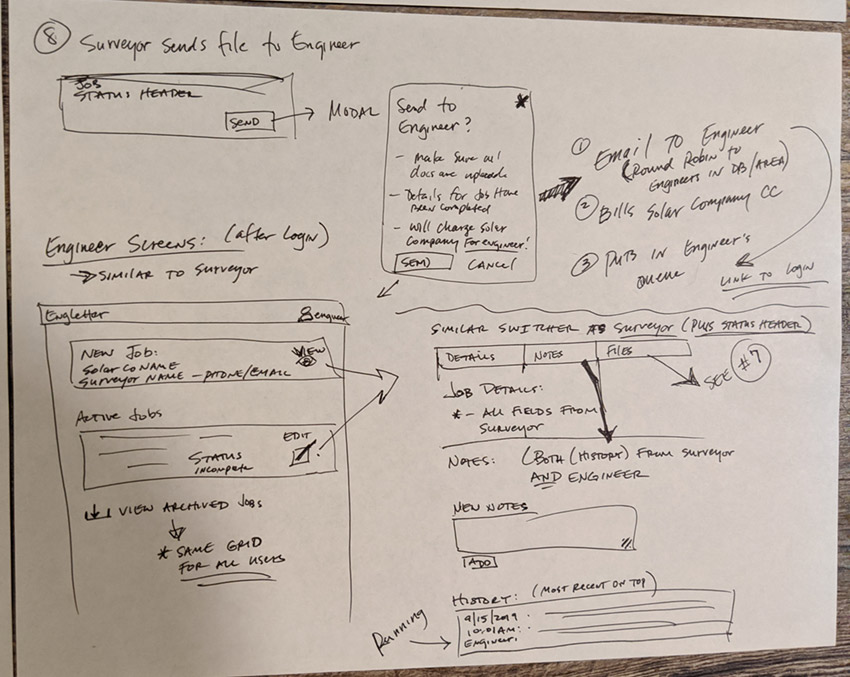 8 Surveyor sends file to Engineer
JOB
STATUS HEADER
SEND
MODAL
Send to
Engineer?
- make sure all
docs are uploaded
- Details for Job Have
Been completed
- will charge Solar
Company For engineer!
SEND CANCEL
① Email To Engineer
(Round Robin to
Engineers in DB/AREA)
② Bills Solar Company CC
③ Puts in Engineer's
queue
LINK TO LOGIN
Engineer Screens: (after login)
→ SIMILAR TO SURVEYOR
Engletter
engineer
NEW JOB:
Solar CO NAME
SURVEYOR NAME - PHONE/EMAIL
VIEW
ACTIVE JOBS
EDIT
STATUS
INCOMPLETE
VIEW ARCHIVED JOBS
* SAME GRID
FOR ALL USERS
SIMILAR SWITCHER AS SURVEYOR (PLUS STATUS HEADER)
DETAILS NOTES FILES
SEE #7
JOB DETAILS:
* - ALL FIELDS FROM
SURVEYOR
NOTES: (BOTH (HISTORY) FROM SURVEYOR
AND ENGINEER
NEW NOTES
ADD
HISTORY: (MOST RECENT ON TOP)
Running
9/15/2019
10:01AM:
Engineer: